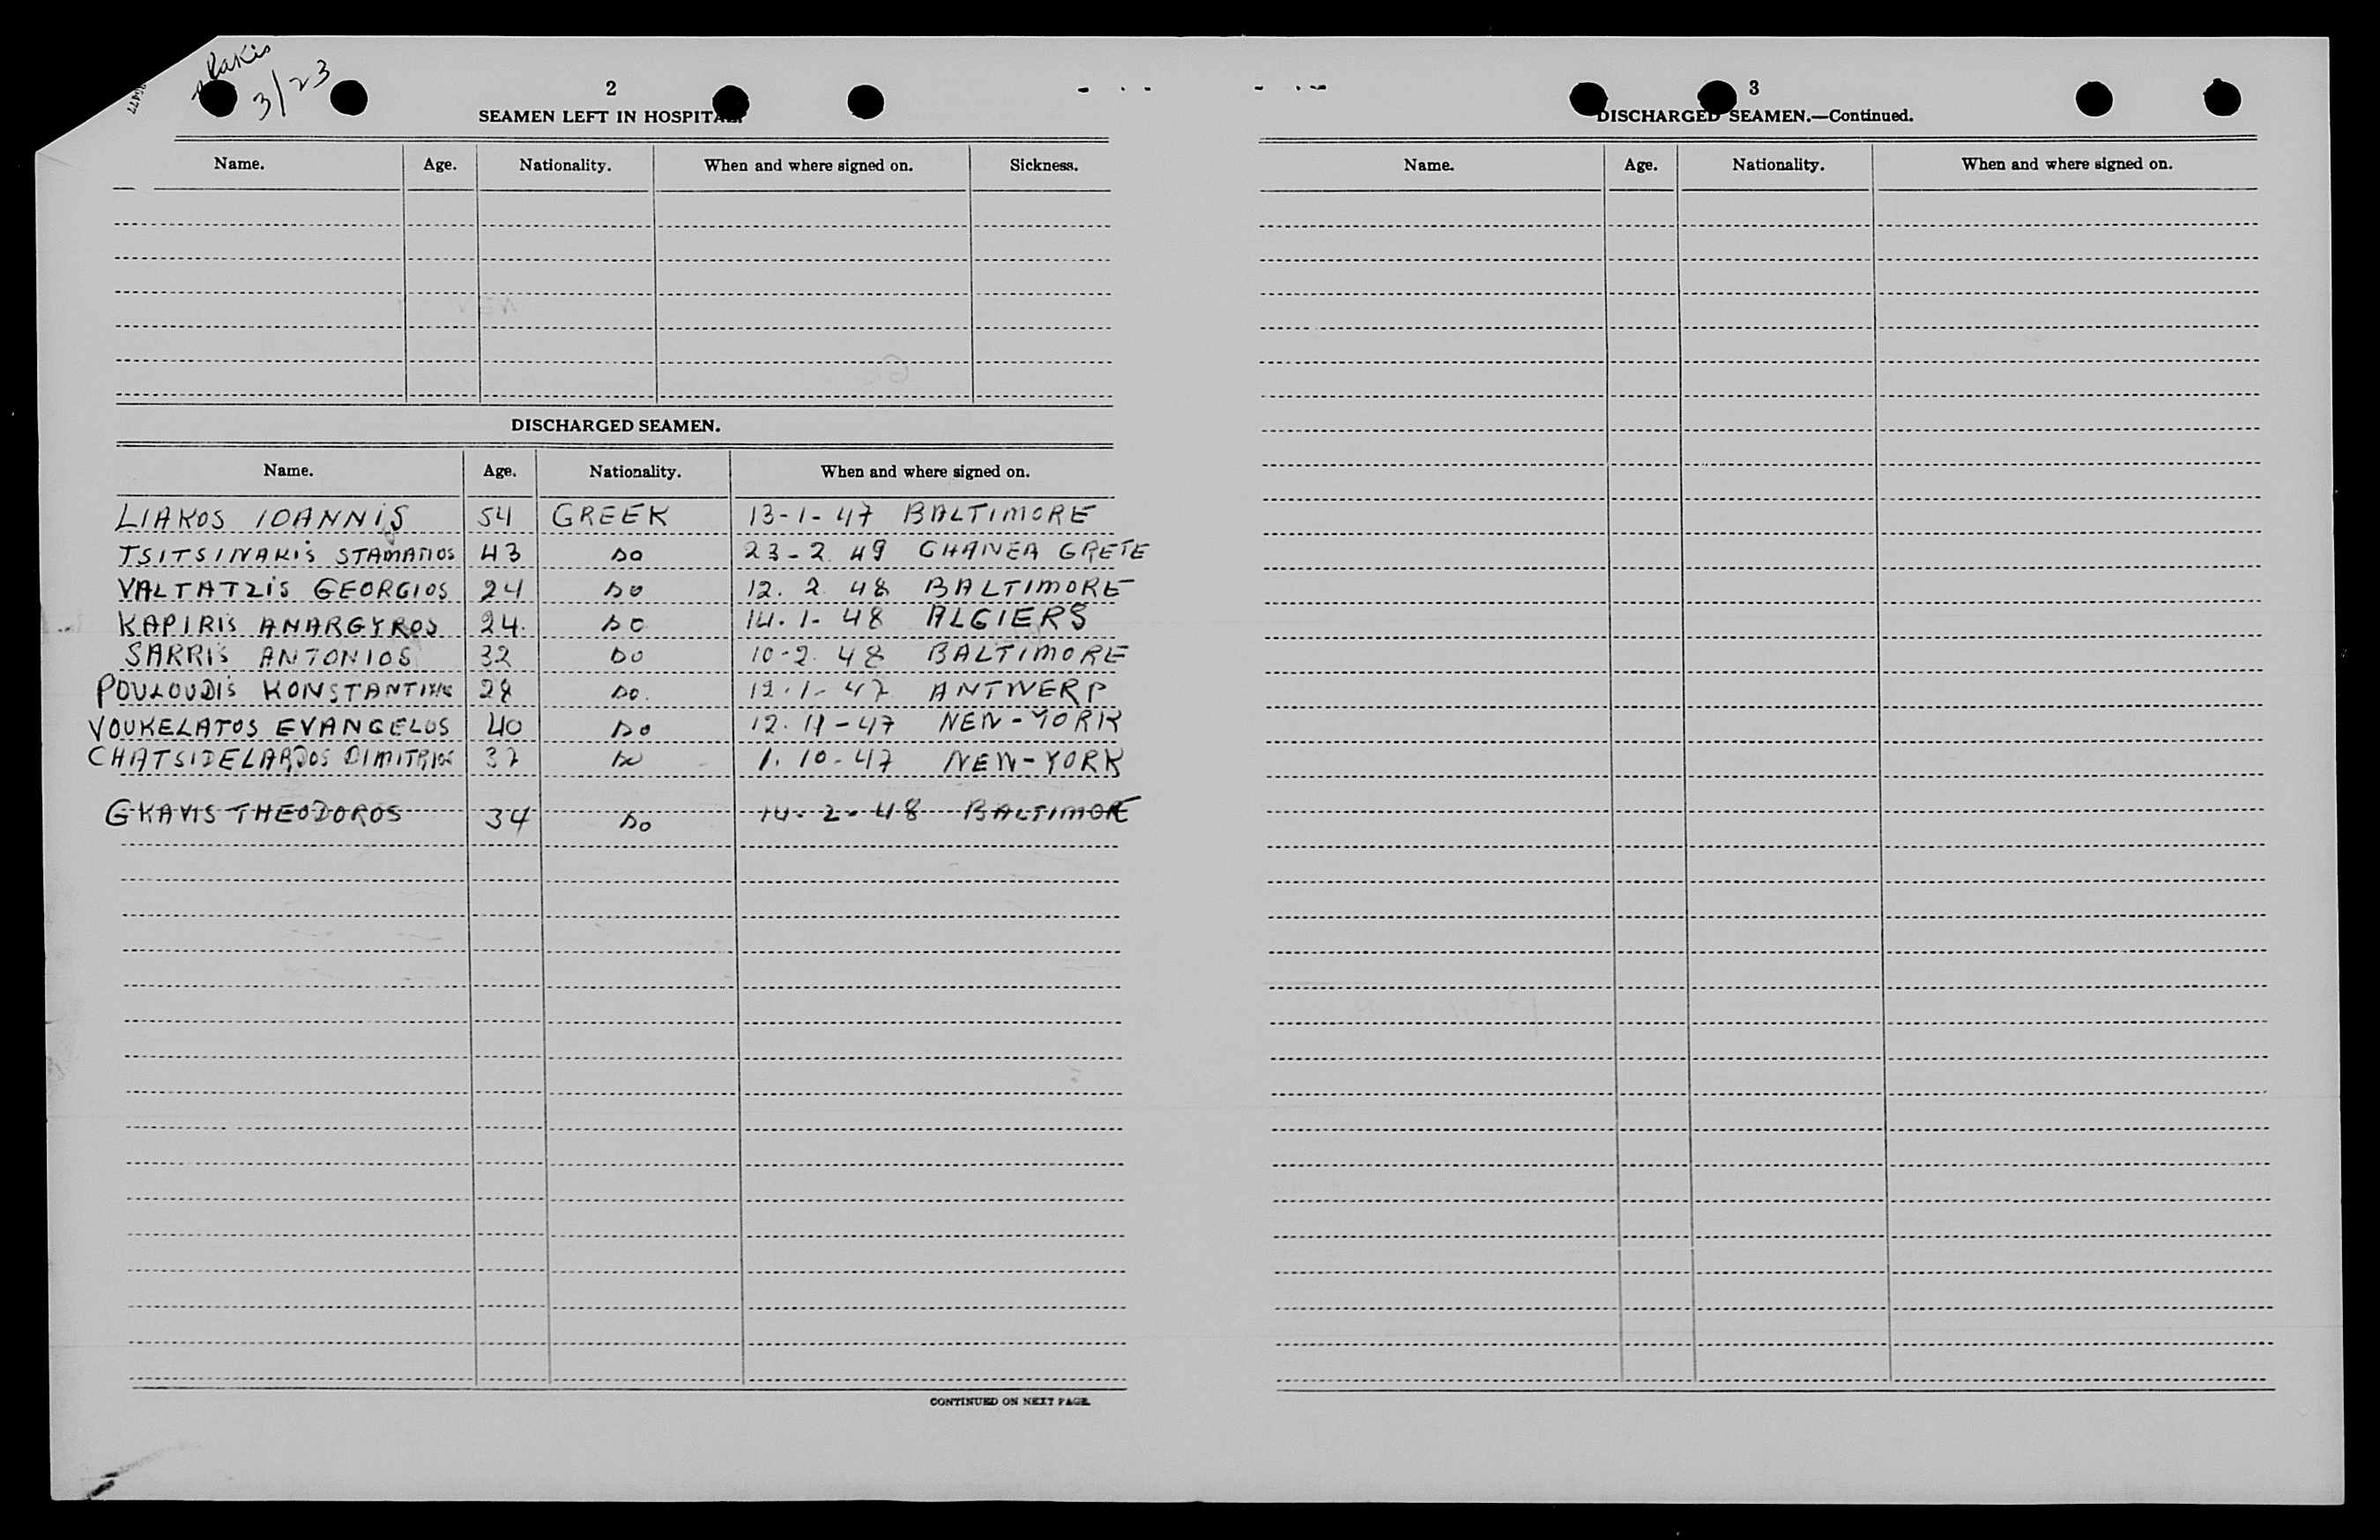 3/23
2
SEAMEN LEFT IN HOSPITAL.
Name. Age. Nationality. When and where signed on. Sickness.
DISCHARGED SEAMEN.
Name. Age. Nationality. When and where signed on.
LIAKOS IOANNIS 54 GREEK 13-1-47 BALTIMORE
TSITSINAKIS STAMATIOS 43 DO 23-2.49 CHANEA GRETE
VALTATZIS GEORGIOS 24 DO 12.2.48 BALTIMORE
KAPIRIS ANARGYROS 24. DO 14.1-48 ALGIERS
SARRIS ANTONIOS 32 DO 10-2.48 BALTIMORE
POULOUDIS KONSTANTINOS 28 DO. 12.1-47 ANTWERP
VOUKELATOS EVANGELOS 40 DO 12.11-47 NEW-YORK
CHATSIDELARDOS DIMITRIOS 37 DO 1.10-47 NEW-YORK
GKAVIS THEODOROS 34 DO 14-2-48 BALTIMORE
CONTINUED ON NEXT PAGE.
3
DISCHARGED SEAMEN.—Continued.
Name. Age. Nationality. When and where signed on.